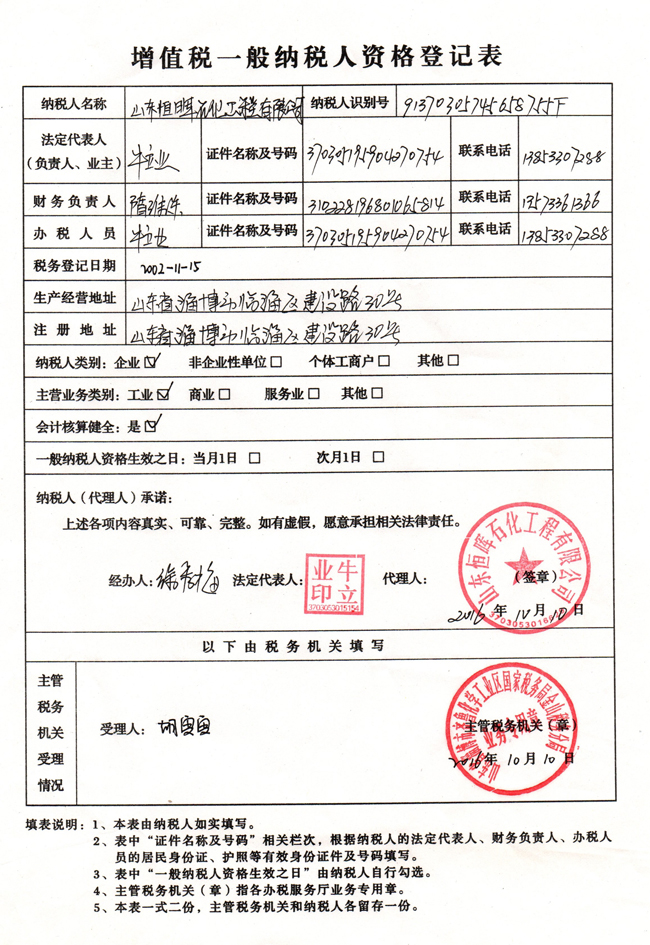 增值税一般纳税人资格登记表
纳税人名称 山东恒晖石化工程有限公司 纳税人识别号
法定代表人（负责人、业主） 牛立业 证件名称及号码 370305195904270754 联系电话 13853307288
财务负责人 证件名称及号码 310228196801065814 联系电话 13573361366
办税人员 牛立业 证件名称及号码 370305195904270754 联系电话 13853307288
税务登记日期 2002-11-15
生产经营地址 山东省淄博市临淄区建设路30号
注册地址 山东省淄博市临淄区建设路30号
纳税人类别：企业☑ 非企业性单位□ 个体工商户□ 其他□
主营业务类别：工业☑ 商业□ 服务业□ 其他□
会计核算健全：是☑
一般纳税人资格生效之日：当月1日 □ 次月1日 □
纳税人（代理人）承诺：
上述各项内容真实、可靠、完整。如有虚假，愿意承担相关法律责任。
山东恒晖石化工程有限公司
经办人： 法定代表人： 牛立业印 代理人： （签章）
2016年10月10日
以下由税务机关填写
主管税务机关受理情况
受理人： 主管税务机关（章）
业务专用章
2016年10月10日
填表说明：1、本表由纳税人如实填写。
2、表中“证件名称及号码”相关栏次，根据纳税人的法定代表人、财务负责人、办税人
员的居民身份证、护照等有效身份证件及号码填写。
3、表中“一般纳税人资格生效之日”由纳税人自行勾选。
4、主管税务机关（章）指各办税服务厅业务专用章。
5、本表一式二份，主管税务机关和纳税人各留存一份。